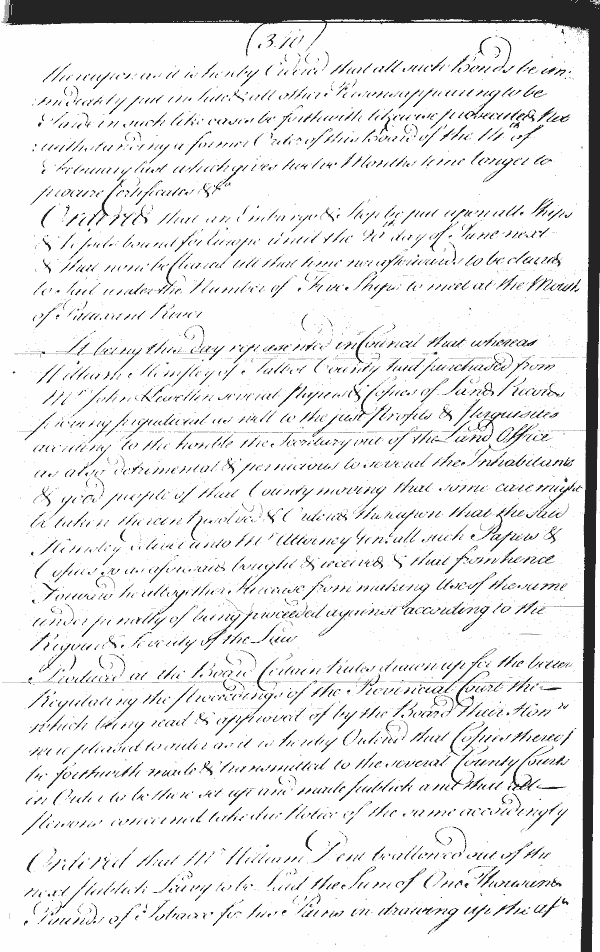 (310)
thereupon as it is hereby Ordered that all such Bonds be im-
mediately put in suite & all other Persons appearing to be
Slande in such like cases be forthwith likewise prosecuted Not
withstanding a former Order of this Board of the 14th of
February last which gives twelve Months time longer to
procure Certificates &ca
Ordered that an Embargo & Stop be put upon all Ships
& Vessels bound for Europe untill the day of June next
& that none be Cleared till that time nor afterwards to be cleared
to Sail under the Number of Five Ships to meet at the Mouth
of Patuxent River
It being this day represented in Council that whereas
William Hemsley of Talbot County had purchased from
Mr John Llewellin several Papers & Copies of Land Records
proving prejudicial as well to the just Profits & Perquisites
accruing to the honble the Secretary out of the Land Office
as also detrimental & pernicious to several the Inhabitants
& good people of that County moving that some care might
be taken therein Resolved & Ordered thereupon that the said
Hemsley deliver unto Mr Attorney Genll all such Papers &
Copies so as aforesaid bought & received & that from hence
Forward he altogether Surcease from making Use of the same
under penalty of being proceeded against according to the
Rigour & Severity of the Law
Produced at the Board Certain Rules drawn up for the better
Regulating the Proceedings of the Provincial Court the
which being read & approved of by the Board their Honrs
were pleased to order as it is hereby Ordered that Copies thereof
be forthwith made & transmitted to the several County Courts
in Order to be there set up and made publick and that all
persons concerned take due Notice of the same accordingly
Ordered that Mr William Dent be allowed out of the
next Publick Leavy to be Laid the Sum of One Thousand
Pounds of Tobacco for his Pains in drawing up the afd